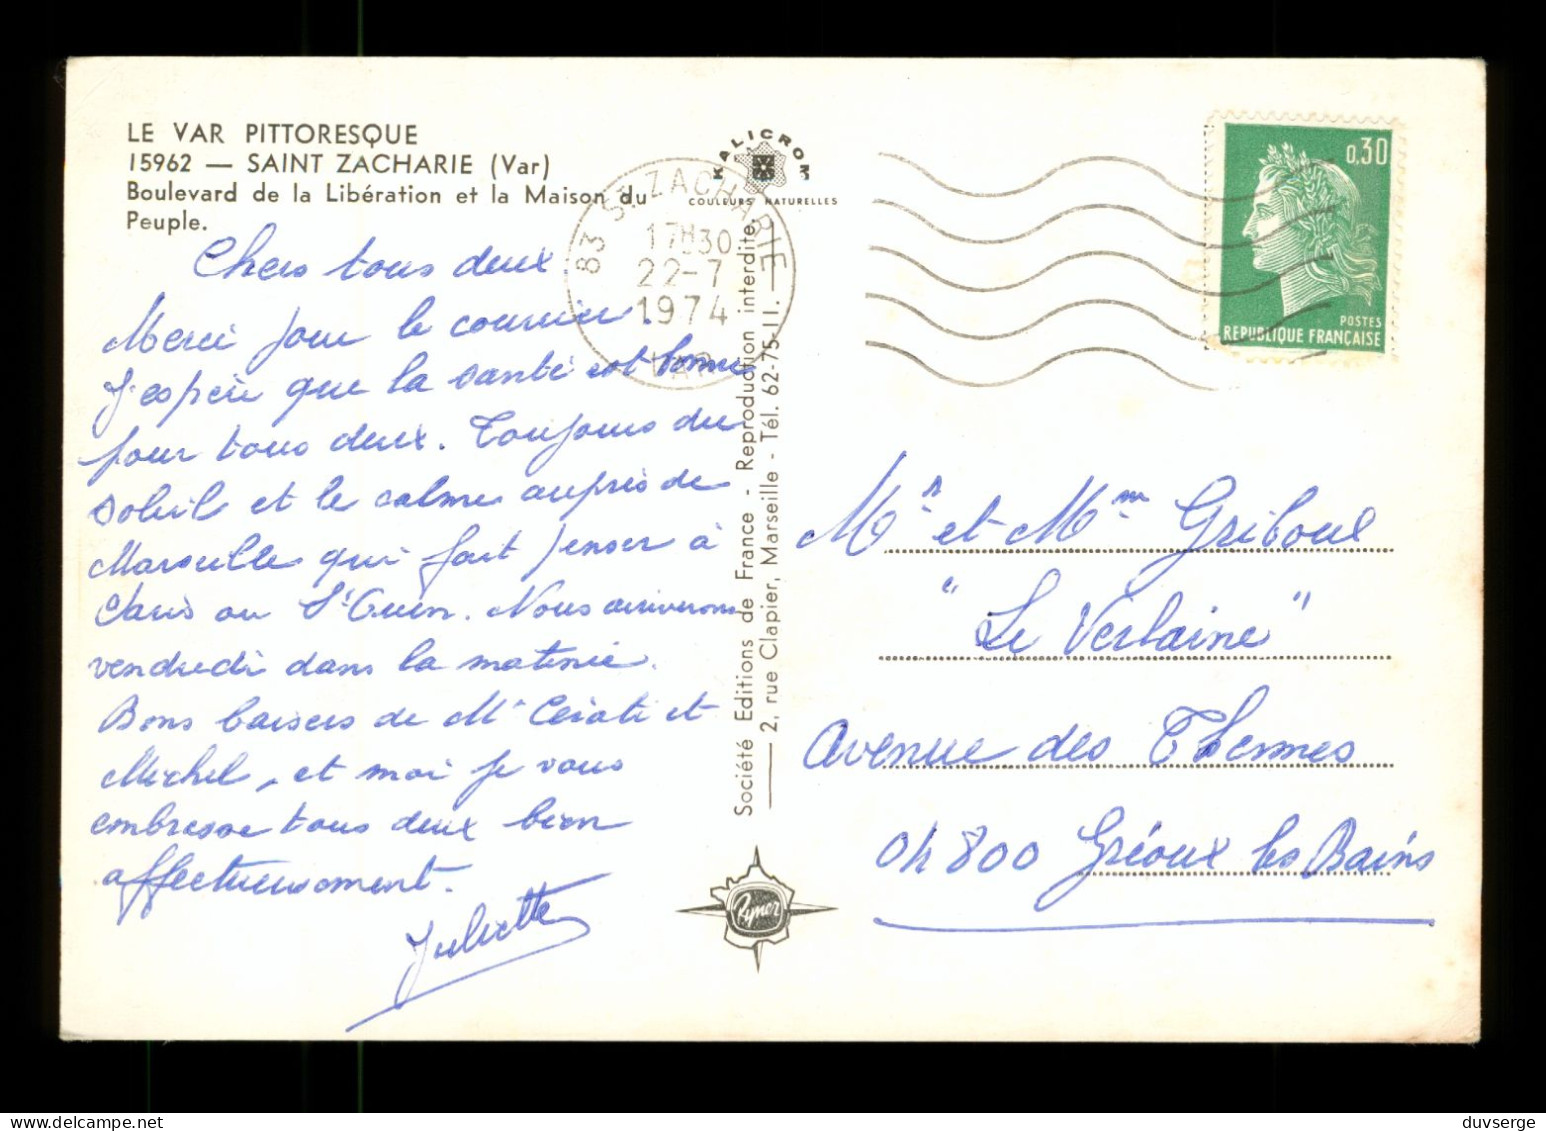 LE VAR PITTORESQUE
15962 — SAINT ZACHARIE (Var)
Boulevard de la Libération et la Maison du
Peuple.
KALICROM
COULEURS NATURELLES
83 ST ZACHARIE
17H30
22-7
1974
VAR
0,30
POSTES
REPUBLIQUE FRANÇAISE
Chers tous deux.
Merci pour le courrier.
J'espère que la santé est bonne
pour tous deux. Toujours du
soleil et le calme auprès de
Marseille qui fait penser à
ou St
Nous arriverons
vendredi dans la matinée.
Bons baisers de Mr et
Michel, et moi je vous
embrasse tous deux bien
affectueusement.
Juliette
Société Editions de France - Reproduction interdite.
2, rue Clapier, Marseille - Tél. 62-75-11.
Rymer
Mr et Mme Griboul
"Le Verlaine"
Avenue des Thermes
04800 Gréoux les Bains
duvserge